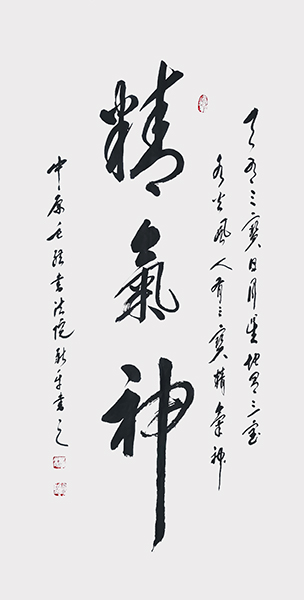 天有三寶日月星地有三寶
水火風人有三寶精氣神
精氣神
中原毛體書法院新年書之